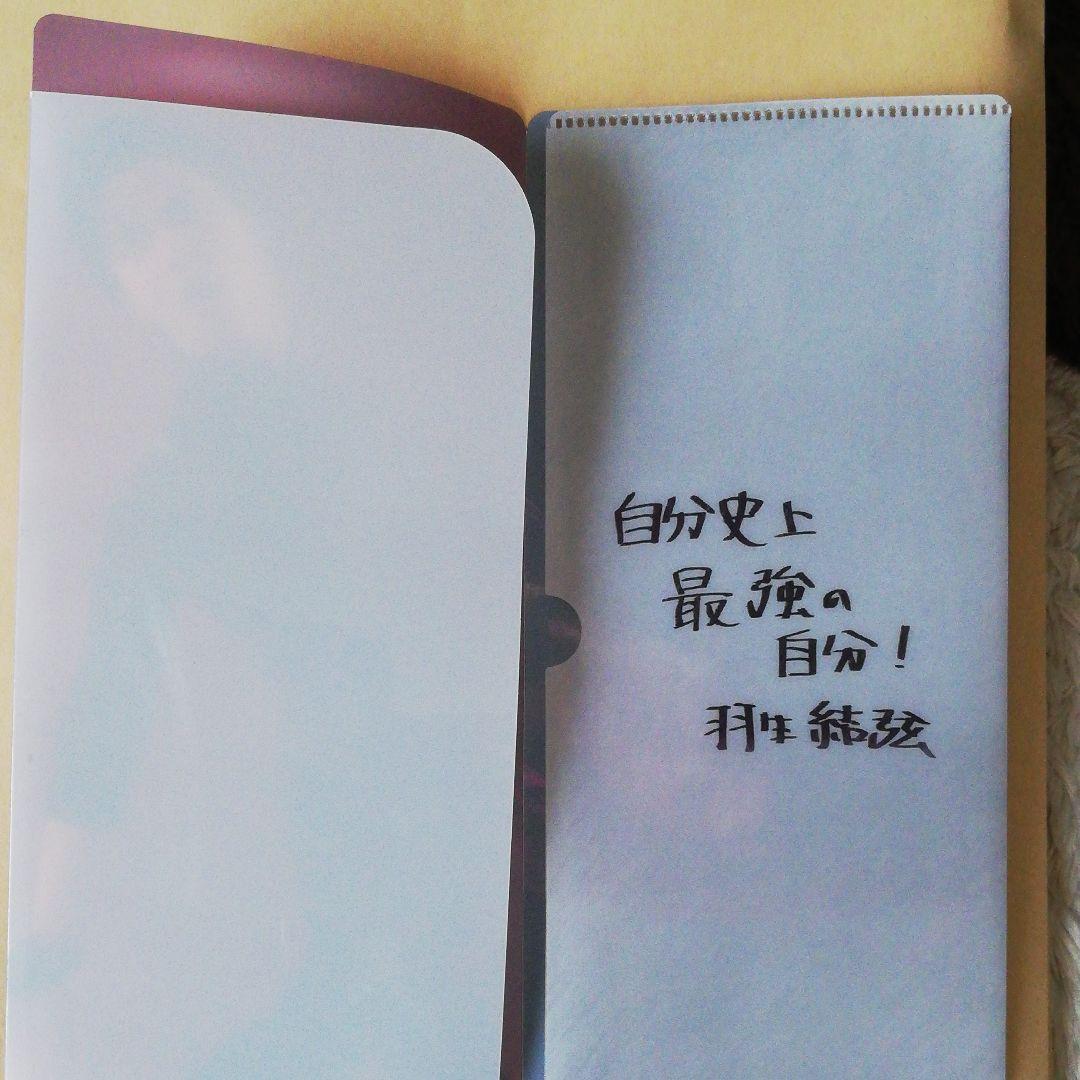 自分史上
最強の
自分!
羽生結弦